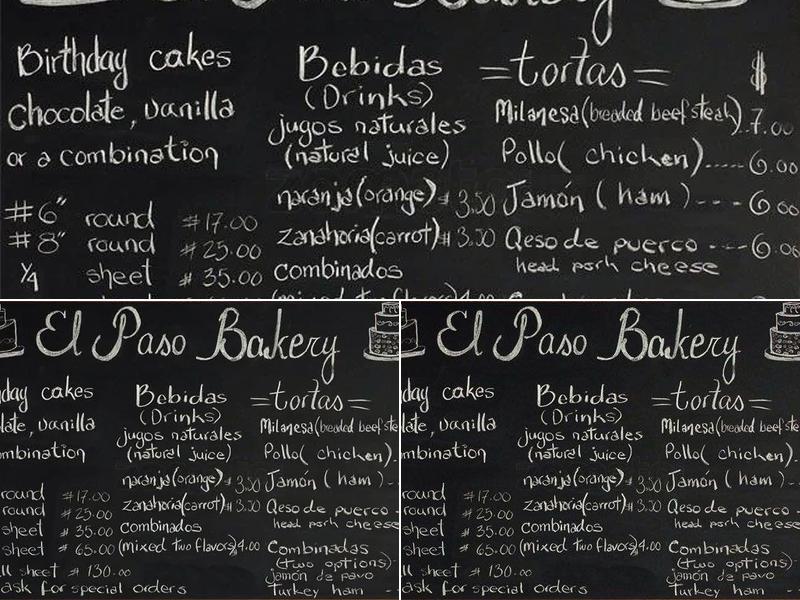 Birthday cakes
chocolate, vanilla
or a combination
#6" round #17.00
#8" round #25.00
1/4 sheet # 35.00
Bebidas
(Drinks)
jugos naturales
(natural juice)
naranja(orange) # 3.50
zanahoria(carrot) # 3.50
combinados
=tortas= $
Milanesa(breaded beef steak) 7.00
Pollo( chicken)-----6.00
Jamón ( ham )---6.00
Qeso de puerco ---6.00
head pork cheese
El Paso Bakery
day cakes
late, vanilla
mbination
round #17.00
round #25.00
sheet # 35.00
sheet # 65.00
ll sheet # 130.00
ask for special orders
Bebidas
(Drinks)
jugos naturales
(natural juice)
naranja(orange) # 3.50
zanahoria(carrot) # 3.50
combinados
(mixed two flavors) 4.00
=tortas=
Milanesa(breaded beef ste
Pollo( chicken)-
Jamón ( ham )--
Qeso de puerco -
head pork cheese
Combinadas
(two options)
jamón de pavo
Turkey ham
El Paso Bakery
day cakes
late, vanilla
mbination
round #17.00
round #25.00
sheet # 35.00
sheet # 65.00
ll sheet # 130.00
ask for special orders
Bebidas
(Drinks)
jugos naturales
(natural juice)
naranja(orange) # 3.50
zanahoria(carrot) # 3.50
combinados
(mixed two flavors) 4.00
=tortas=
Milanesa(breaded beef ste
Pollo( chicken)-
Jamón ( ham )--
Qeso de puerco -
head pork cheese
Combinadas
(two options)
jamón de pavo
Turkey ham